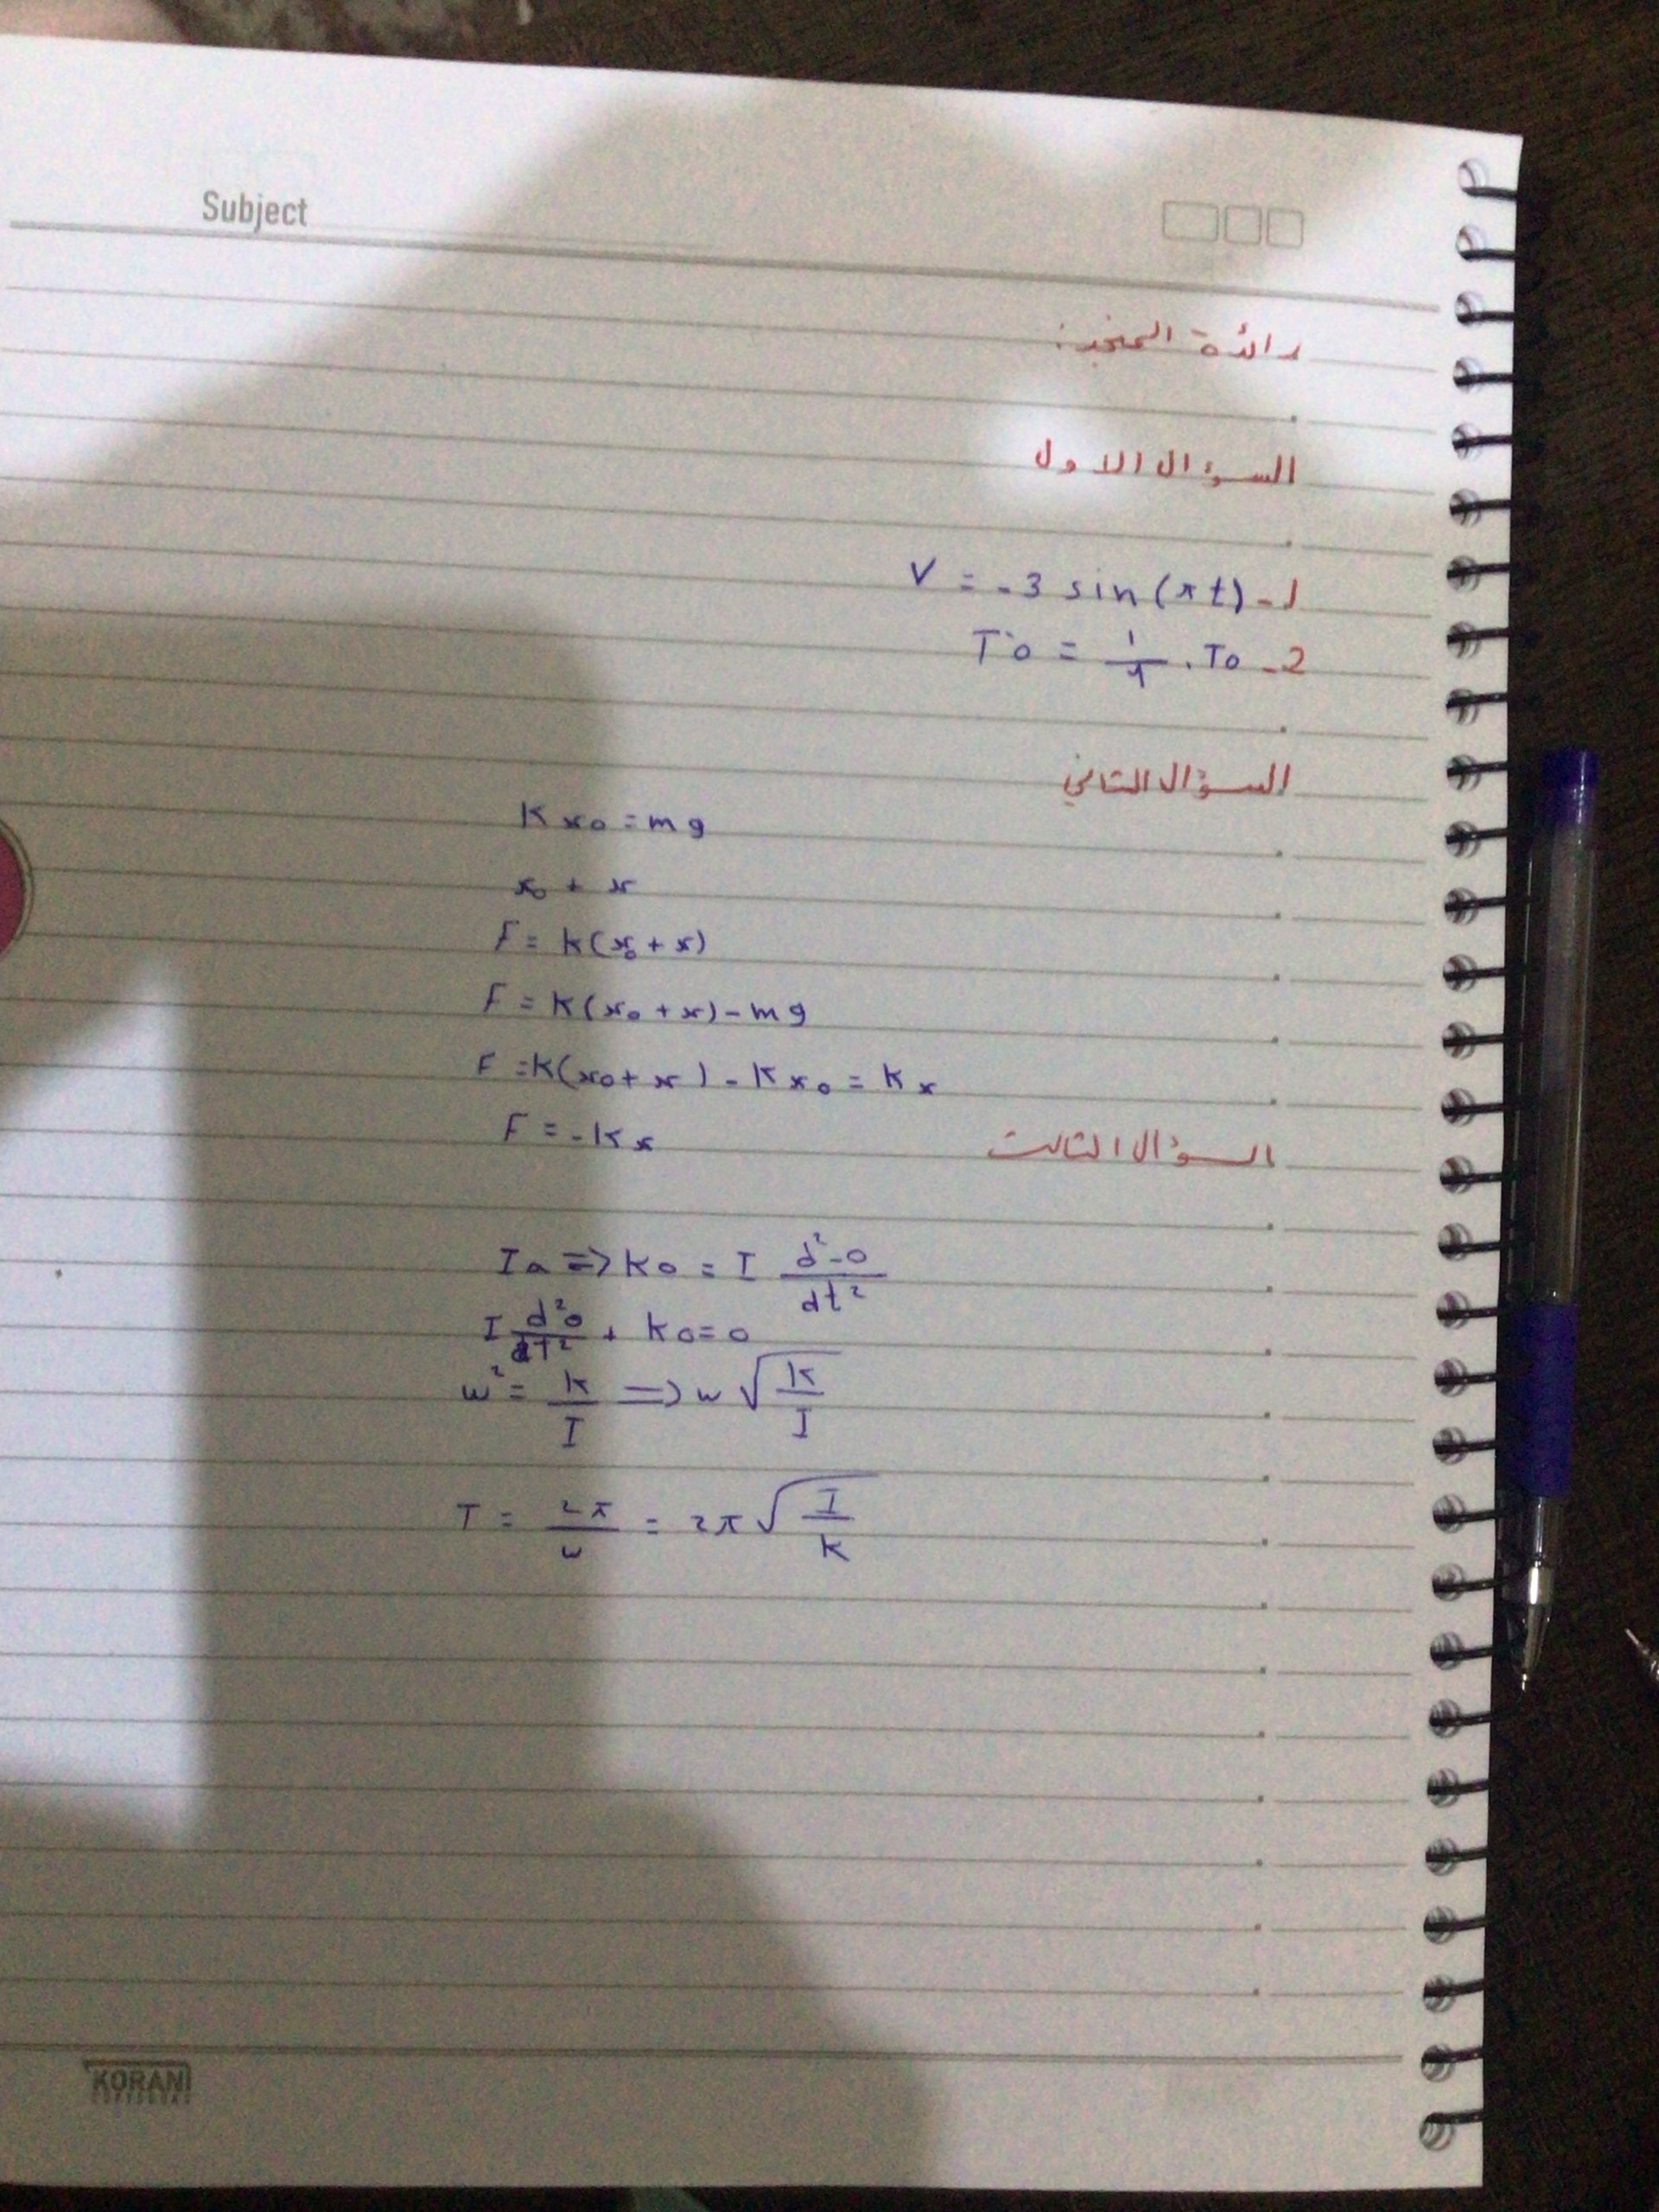 Subject
رائدة المنجد:
السؤال الاول
V = -3 sin(πt) -1
T'o = 1/4 . To -2
السؤال الثاني
K x₀ = mg
x₀ + x
F = k(x₀ + x)
F = K(x₀ + x) - mg
F = K(x₀ + x) - K x₀ = K x
F = -K x
السؤال الثالث
Ia => ko = I d²-o/dt²
I d²o/dT² + ko = o
w² = k/I => w √(K/I)
T = 2π/w = 2π √(I/k)
KORANI